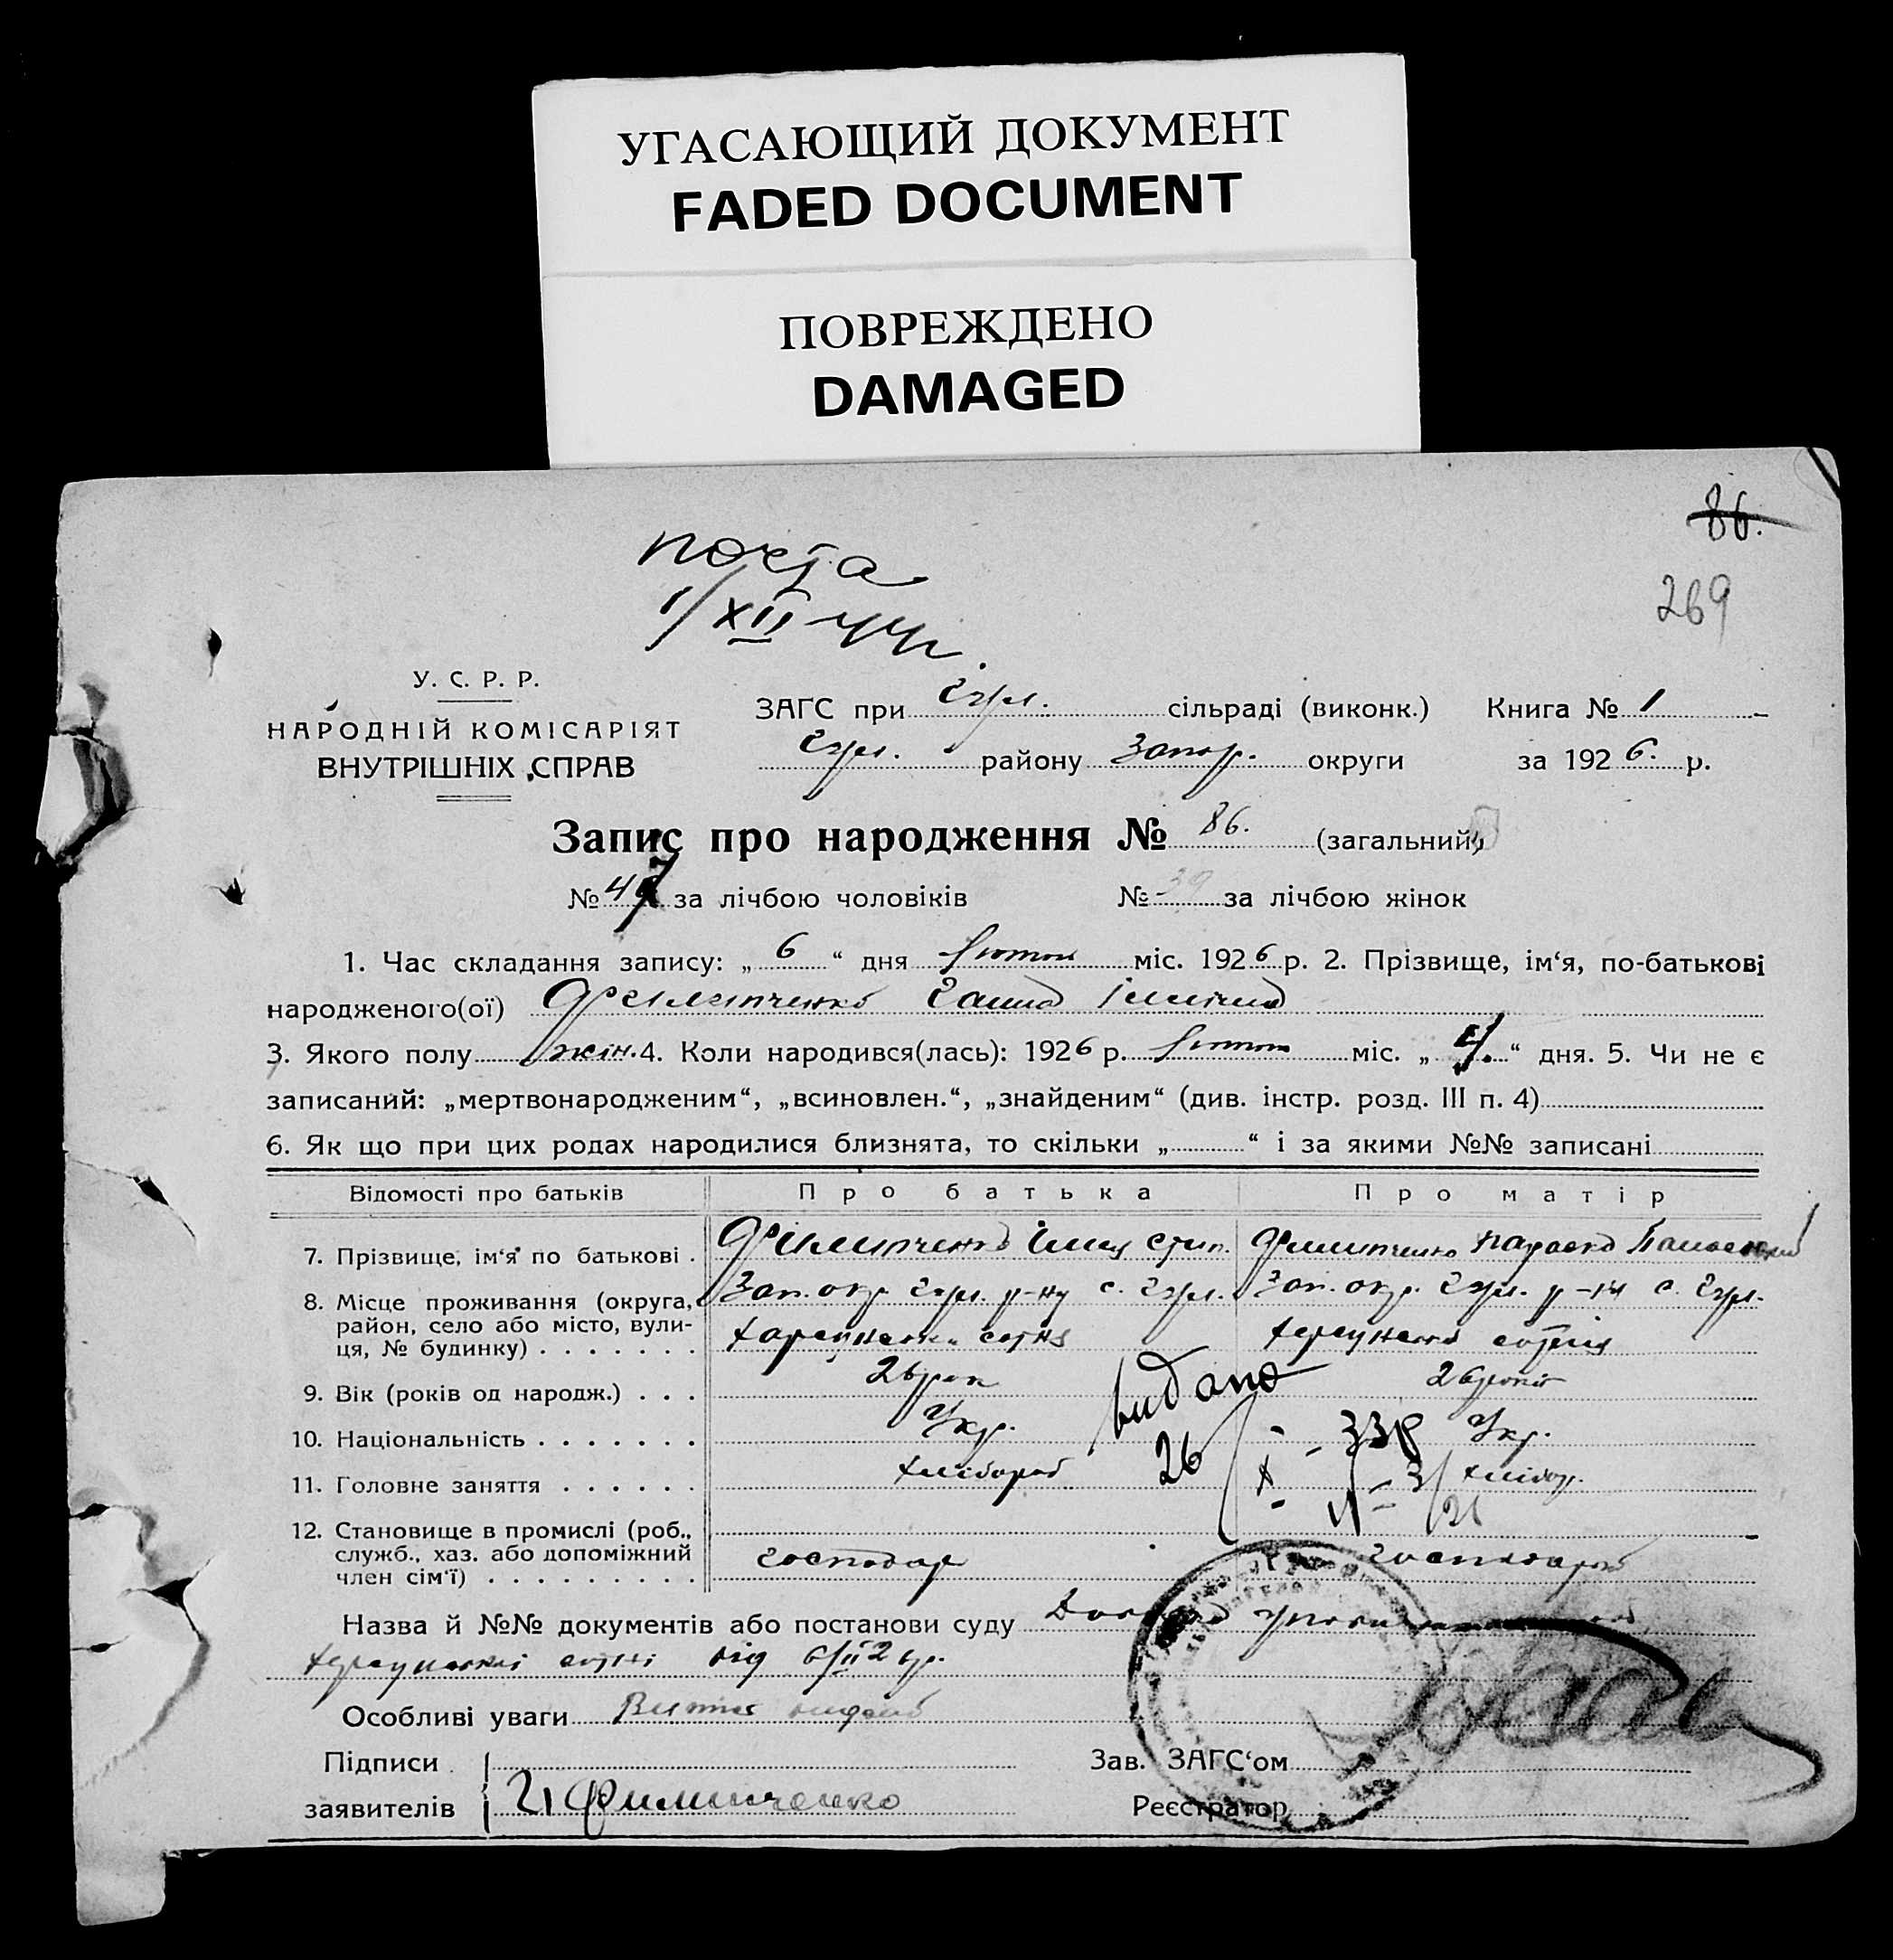 УГАСАЮЩИЙ ДОКУМЕНТ
FADED DOCUMENT
ПОВРЕЖДЕНО
DAMAGED
86.
269
почта
1/XII 44г.
У. С. Р. Р.
НАРОДНІЙ КОМІСАРІЯТ
ВНУТРІШНІХ СПРАВ
ЗАГС при Гул. сільраді (виконк.) Книга № 1
Гул. району Запор. округи за 1926. р.
Запис про народження № 86. (загальний)
№ 47 за лічбою чоловіків № 39 за лічбою жінок
1. Час складання запису: „ 6 “ дня лютого міс. 1926 р. 2. Прізвище, ім‘я, по-батькові
народженого(ої) Филипченко Ганна
3. Якого полу жін. 4. Коли народився(лась): 1926 р. лютого міс. „ 4. “ дня. 5. Чи не є
записаний: „мертвонародженим“, „всиновлен.“, „знайденим“ (див. інстр. розд. III п. 4)
6. Як що при цих родах народилися близнята, то скільки „ “ і за якими №№ записані
Відомості про батьків Про батька Про матір
7. Прізвище, ім‘я по батькові . Филипченко Стип. Филипченко Параска
8. Місце проживання (округа, район, село або місто, вулиця, № будинку) . . . . . . . Зап. окр. Гул. р-ну с. Гул. Зап. окр. Гул. р-ну с. Гул.
Херсунська сотня Херсунська сотня
9. Вік (років од народж.) . . . 26 рок 26 років
видано
26/X - 33р
10. Національність . . . . . . . Укр. Укр.
11. Головне заняття . . . . . . хлібороб хлібор.
12. Становище в промислі (роб., служб., хаз. або допоміжний член сім‘ї) . . . . . . . . . господар господар
Назва й №№ документів або постанови суду
Херсунської сотні від 6/II 26р.
Особливі уваги Витяг видано
Підписи
заявителів Филипченко
Зав. ЗАГС‘ом
Реєстратор